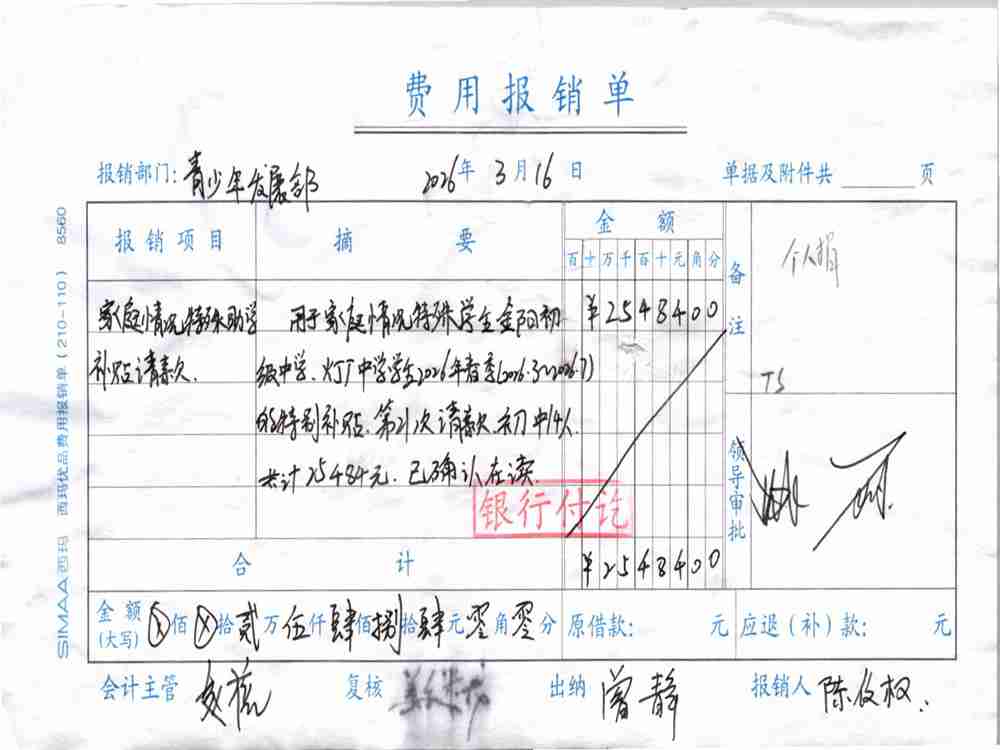 费用报销单
报销部门: 青少年发展部 2026年 3月16日 单据及附件共 页
报销项目 摘要 金额 备注 个人捐
百十万千百十元角分
家庭情况特殊助学 用于家庭情况特殊学生金阳初 ¥2548400
补贴请款. 级中学、灯厂中学学生2026年春季(2026.3~2026.7)
TS
的特别补贴. 第21次请款. 初中14人.
共计25484元. 已确认在读. 领导审批
银行付讫
合计 ¥2548400
金额(大写) ⊗佰⊗拾贰万伍仟肆佰捌拾肆元零角零分 原借款: 元 应退(补)款: 元
会计主管 复核 出纳 曾静 报销人
SIMAA 西玛 西玛优品费用报销单(210-110) 8560